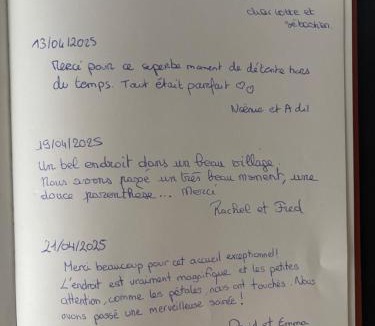 Charlotte et
Sébastien.
13/04/2025
Merci pour ce superbe moment de détente hors
du temps. Tout était parfait ♡♡
et Adil
19/04/2025
Un bel endroit dans un beau village.
Nous avons passé un très beau moment, une
douce parenthèse... Merci
Rachel et Fred
21/04/2025
Merci beaucoup pour cet accueil exceptionnel!
L'endroit est vraiment magnifique et les petites
attention, comme les pétales nous ont touchés. Nous
avons passé une merveilleuse soirée!
et Emma